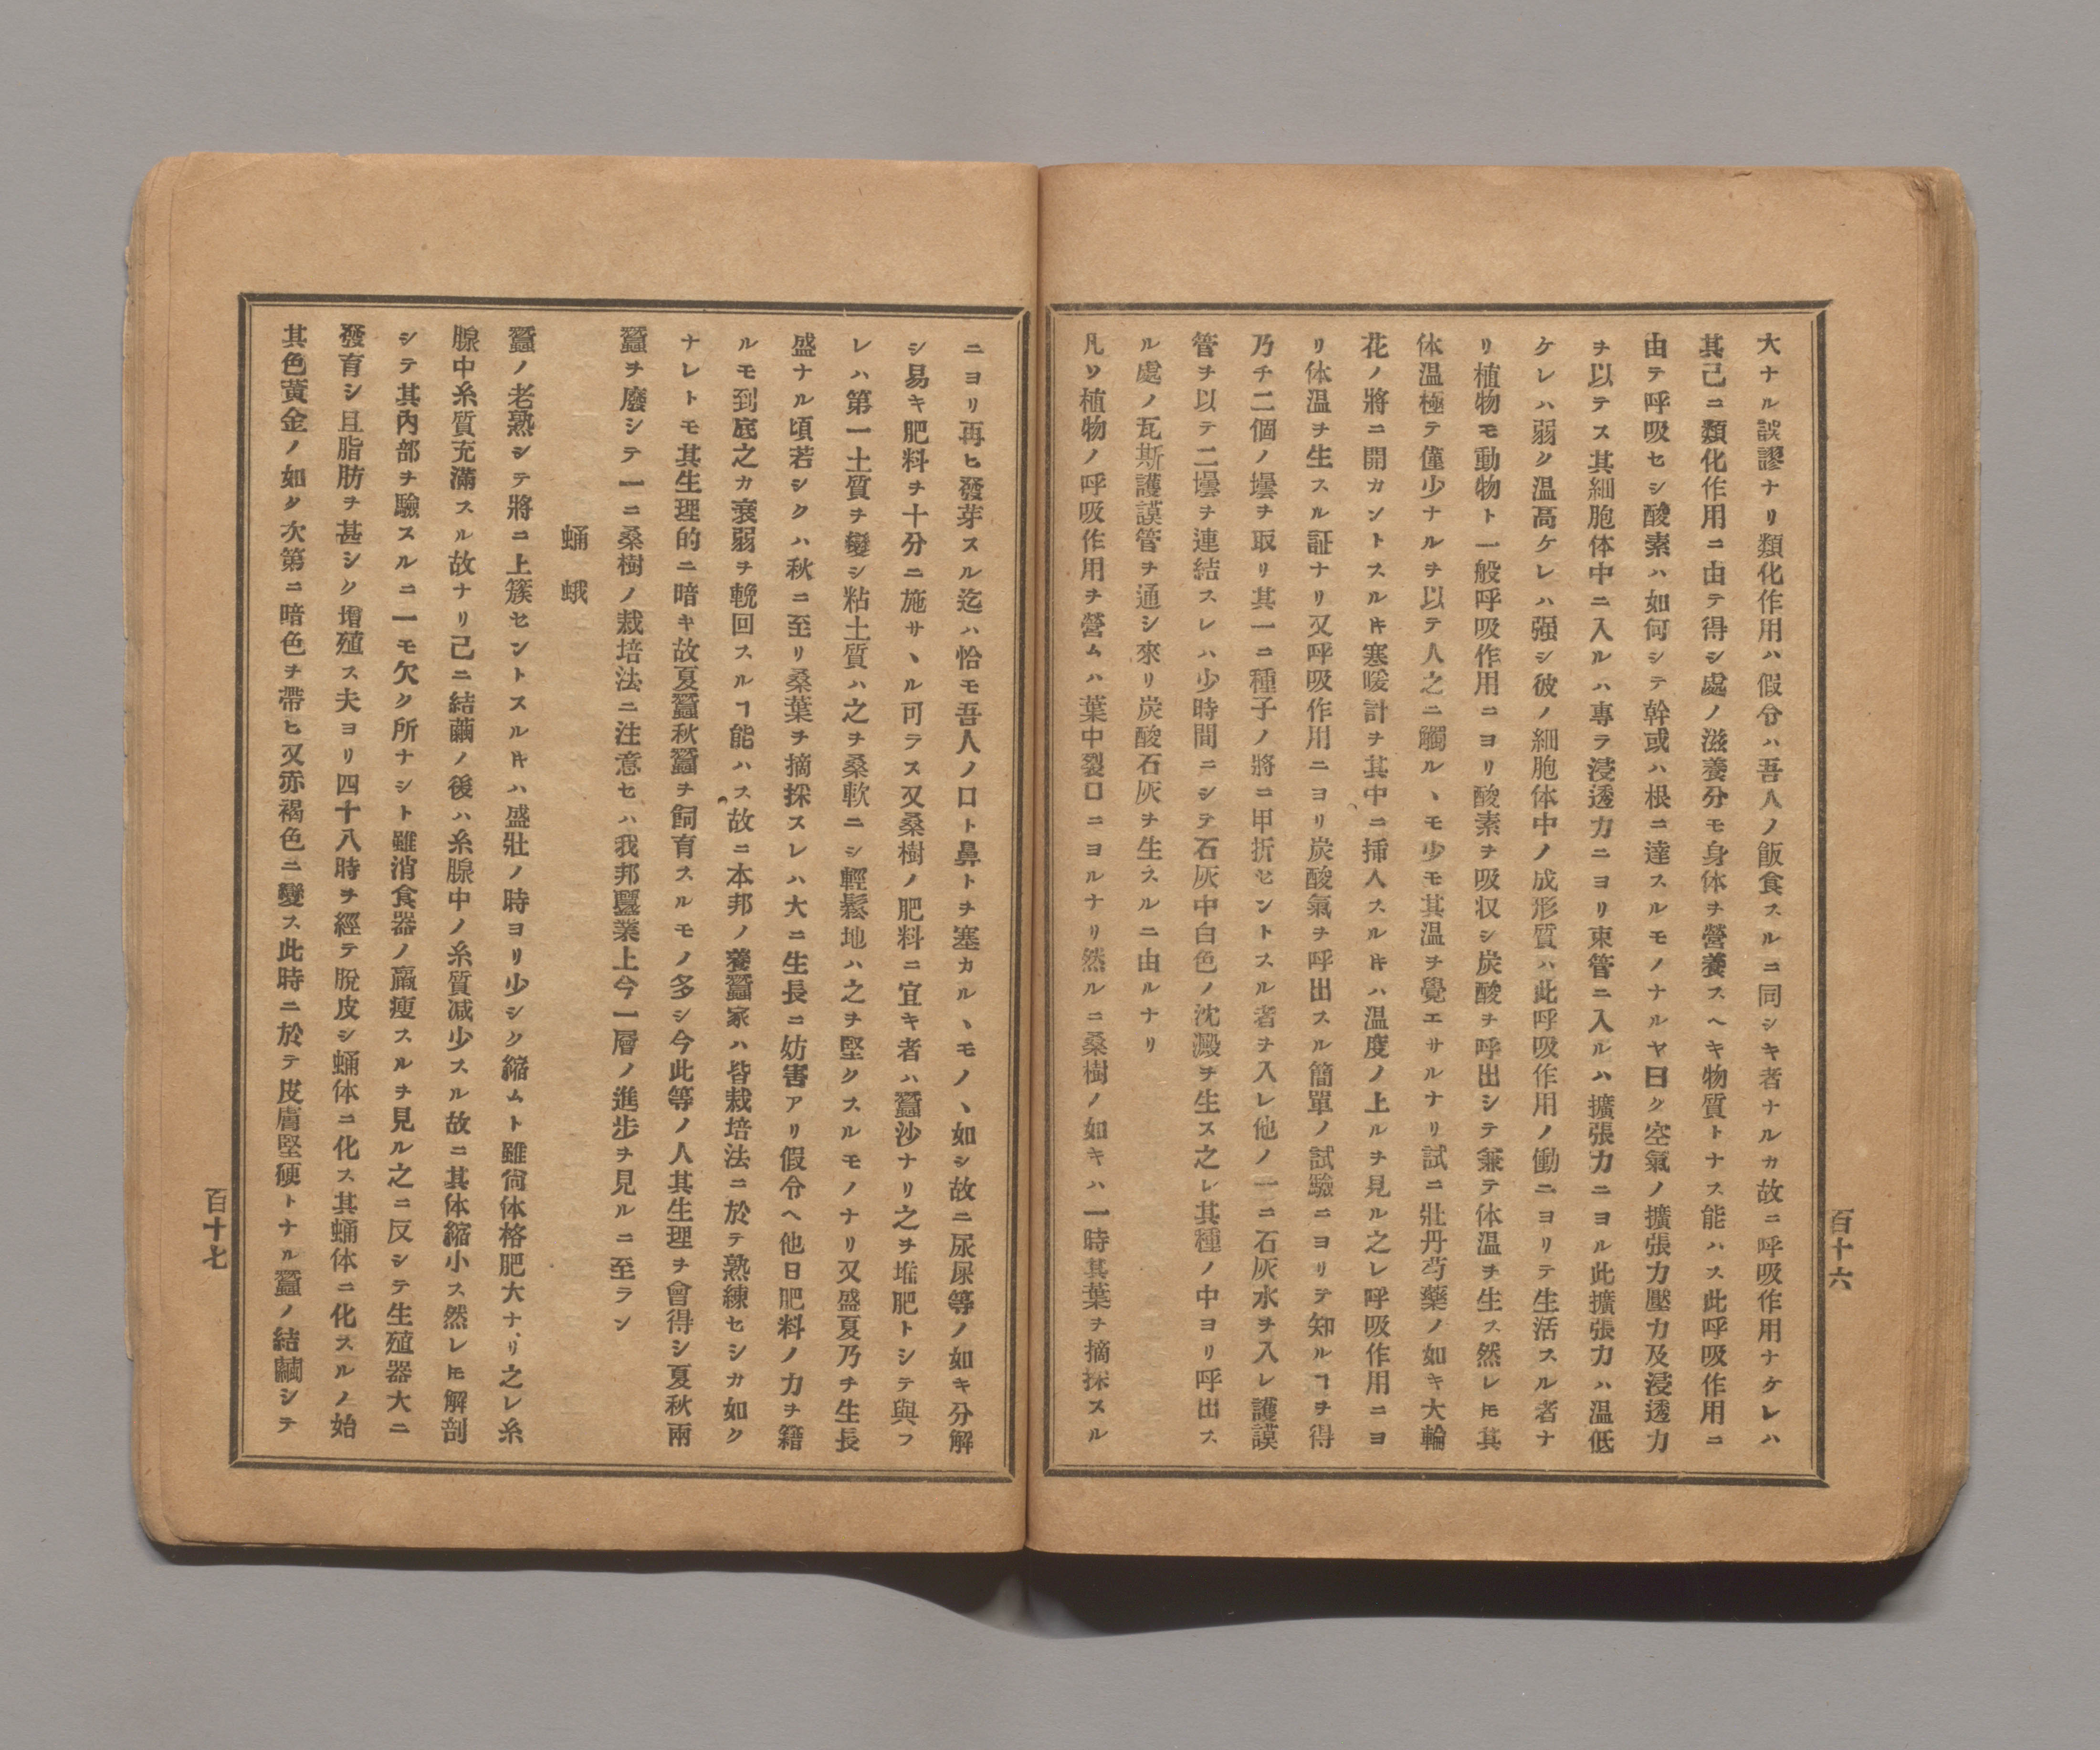 百十六
大ナル誤謬ナリ類化作用ハ假令ハ吾人ノ飯食スルニ同シキ者ナルカ故ニ呼吸作用ナケレハ
其己ニ類化作用ニ由テ得シ處ノ滋養分モ身体ヲ營養スヘキ物質トナス能ハス此呼吸作用ニ
由テ呼吸セシ酸素ハ如何シテ幹或ハ根ニ達スルモノナルヤ曰ク空氣ノ擴張力壓力及浸透力
ヲ以テス其細胞体中ニ入ルハ專ラ浸透力ニヨリ東管ニ入ルハ擴張力ニヨル此擴張力ハ温低
ケレハ弱ク温高ケレハ强シ彼ノ細胞体中ノ成形質ハ此呼吸作用ノ働ニヨリテ生活スル者ナ
リ植物モ動物ト一般呼吸作用ニヨリ酸素ヲ吸収シ炭酸ヲ呼出シテ兼テ体温ヲ生ス然レ𪜈其
体温極テ僅少ナルヲ以テ人之ニ觸ルヽモ少モ其温ヲ覺エサルナリ試ニ壯丹芍藥ノ如キ大輪
花ノ將ニ開カントスル𪜈寒暖計ヲ其中ニ挿入スル𪜈ハ温度ノ上ルヲ見ル之レ呼吸作用ニヨ
リ体温ヲ生スル証ナリ又呼吸作用ニヨリ炭酸氣ヲ呼出スル簡單ノ試驗ニヨリテ知ルヿヲ得
乃チ二個ノ壜ヲ取リ其一ニ種子ノ將ニ甲折セントスル者ヲ入レ他ノ一ニ石灰水ヲ入レ護謨
管ヲ以テ二壜ヲ連結スレハ少時間ニシテ石灰中白色ノ沈澱ヲ生ス之レ其種ノ中ヨリ呼出ス
ル處ノ瓦斯護謨管ヲ通シ來リ炭酸石灰ヲ生スルニ由ルナリ
凡ソ植物ノ呼吸作用ヲ營ムハ葉中裂口ニヨルナリ然ルニ桑樹ノ如キハ一時其葉ヲ摘採スル
ニヨリ再ヒ發芽スル迄ハ恰モ吾人ノ口ト鼻トヲ塞カルヽモノヽ如シ故ニ尿屎等ノ如キ分解
シ易キ肥料ヲ十分ニ施サヽル可ラス又桑樹ノ肥料ニ宜キ者ハ蠶沙ナリ之ヲ堆肥トシテ與フ
レハ第一土質ヲ變シ粘土質ハ之ヲ桑軟ニシ輕鬆地ハ之ヲ堅クスルモノナリ又盛夏乃チ生長
盛ナル頃若シクハ秋ニ至リ桑葉ヲ摘採スレハ大ニ生長ニ妨害アリ假令ヘ他日肥料ノ力ヲ籍
ルモ到底之カ衰弱ヲ輓回スルヿ能ハス故ニ本邦ノ養蠶家ハ皆栽培法ニ於テ熟練セシカ如ク
ナレトモ其生理的ニ暗キ故夏蠶秋蠶ヲ飼育スルモノ多シ今此等ノ人其生理ヲ會得シ夏秋兩
蠶ヲ廢シテ一ニ桑樹ノ栽培法ニ注意セハ我邦蠶業上今一層ノ進步ヲ見ルニ至ラン
蛹　蛾
蠶ノ老熟シテ將ニ上簇セントスル𪜈ハ盛壯ノ時ヨリ少シク縮ムト雖尙体格肥大ナリ之レ糸
腺中糸質充滿スル故ナリ己ニ結繭ノ後ハ糸腺中ノ糸質减少スル故ニ其体縮小ス然レ𪜈解剖
シテ其內部ヲ驗スルニ一モ欠ク所ナシト雖消食器ノ羸瘦スルヲ見ル之ニ反シテ生殖器大ニ
發育シ且脂肪ヲ甚シク增殖ス夫ヨリ四十八時ヲ經テ脫皮シ蛹体ニ化ス其蛹体ニ化スルノ始
其色黃金ノ如ク次第ニ暗色ヲ帶ヒ又赤褐色ニ變ス此時ニ於テ皮膚堅硬トナル蠶ノ結繭シテ
百十七